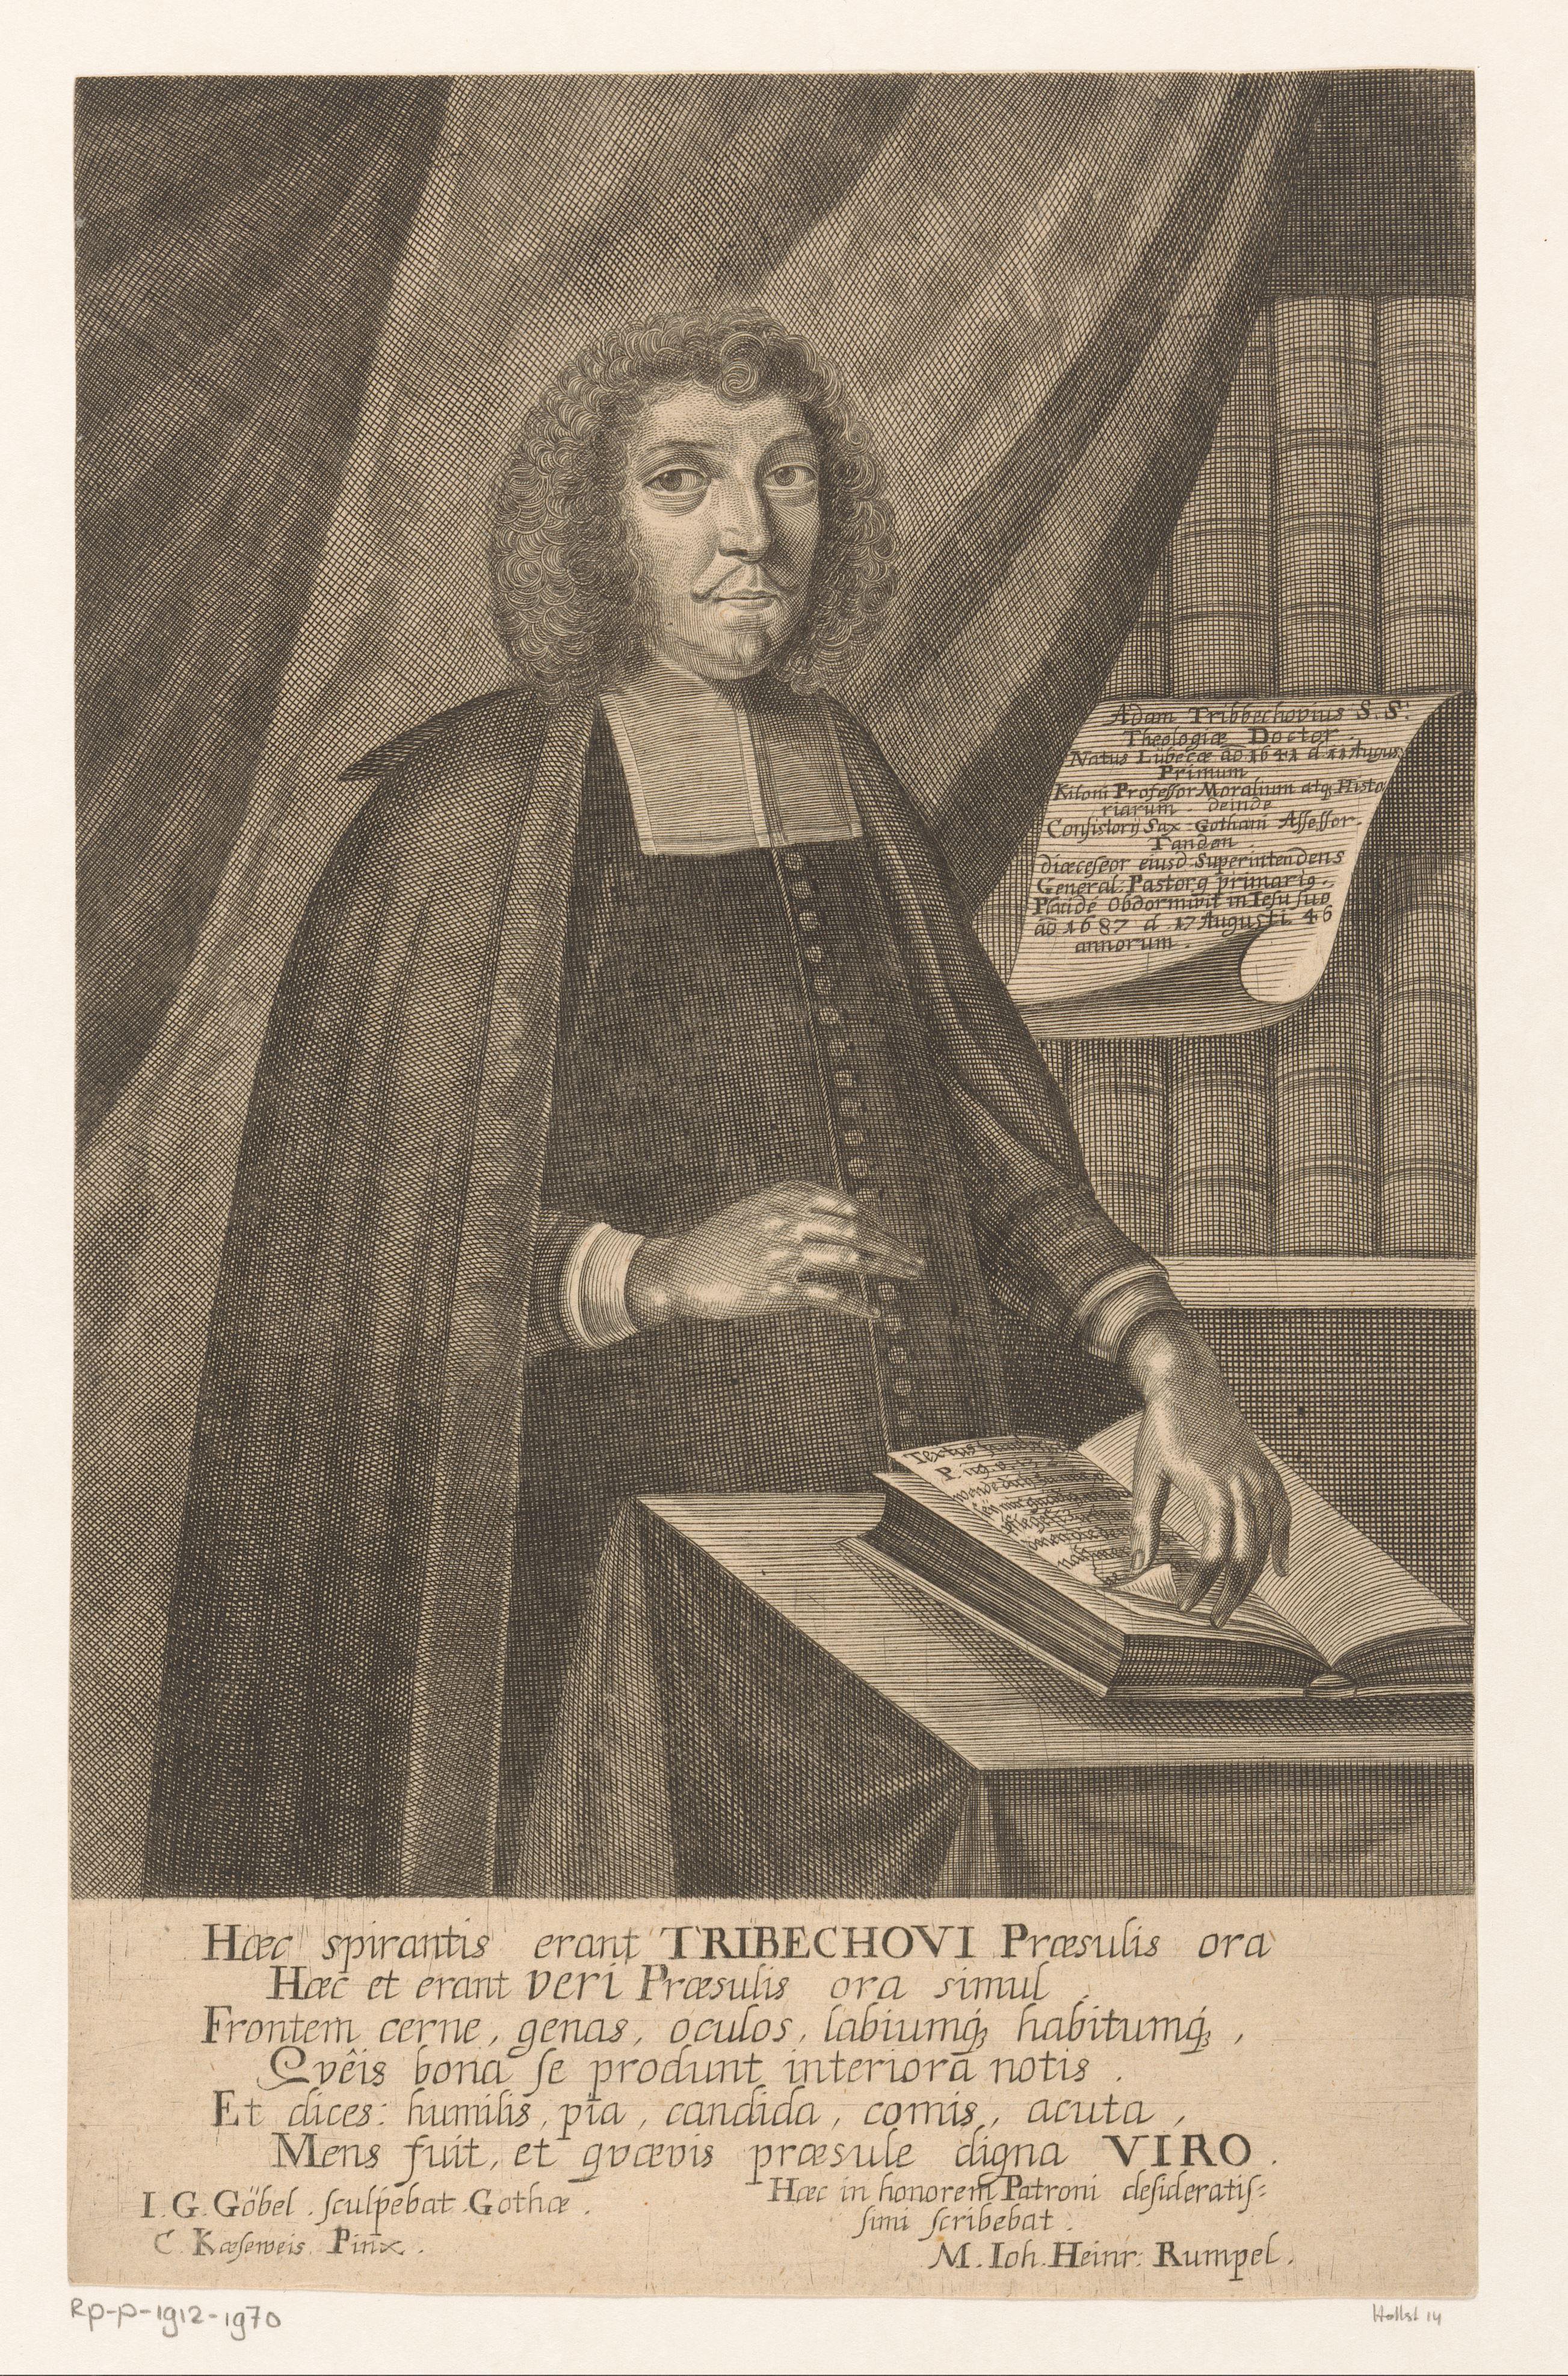 Adam Tribbechovius S. S.
Theologiæ Doctor
Natus Lubecæ aō 1641 d 11 Augus
Primum
Kiloni Professor Moralium atq Histo
riarum deinde
Consistorij Sax-Gothani Assessor.
Tandem
diœceseor eiusd Superintendens
General. Pastorq primarig.
Placide Obdormivit in Iesu suo
aō 1687 d 17 Augusti 46
annorum.
Textus
P. 119.
Hæc spirantis erant TRIBECHOVI Præsulis ora
Hæc et erant veri Præsulis ora simul.
Frontem cerne, genas, oculos, labiumq́; habitumq́;,
Qvêis bona se produnt interiora notis.
Et dices: humilis, pia, candida, comis, acuta,
Mens fuit, et qvævis præsule digna VIRO.
I. G. Göbel. sculpebat Gothæ.
C. Kæseweis Pinx.
Hæc in honorem Patroni desideratis=
simi scribebat.
M. Ioh. Heinr: Rumpel.
Rp-p-1912-1970
Hollst 14